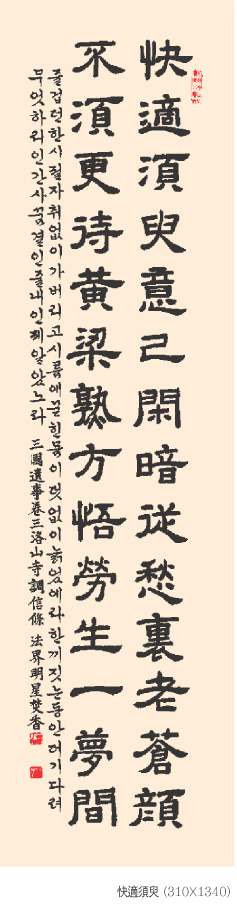 快適須臾意已閑暗從愁裏老蒼顔
不須更待黃梁熟方悟勞生一夢間
즐겁던한시절자취없이가버리고시름에묻힌몸이덧없이늙었에라한끼짓는동안더기다려
무엇하리인간사꿈결인줄내인제알았노라 三國遺事卷三洛山寺調信條 法界明星焚香
快適須臾 (310X1340)